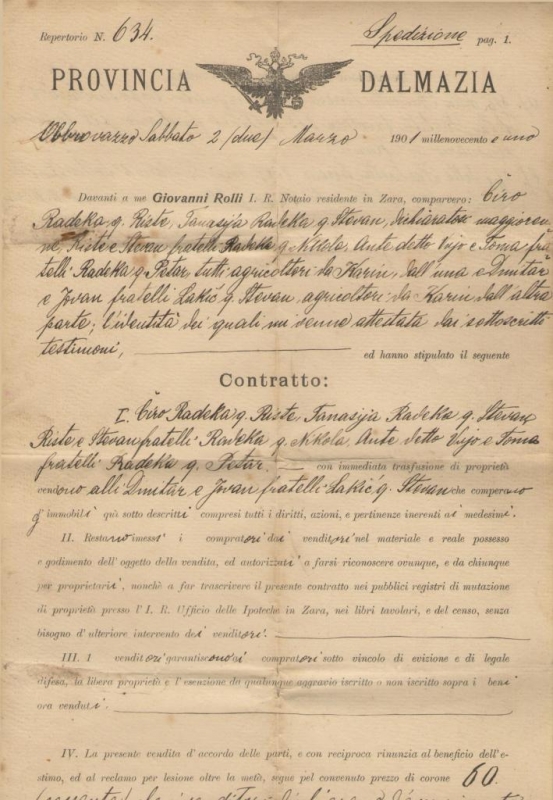 Repertorio N. 634.
Spedizione pag. 1.
PROVINCIA DALMAZIA
Obbrovazzo Sabbato 2 (due) Marzo 1901 millenovecento e uno
Davanti a me Giovanni Rolli I. R. Notaio residente in Zara, comparvero: Ćiro
Radeka q. Riste, Tanasija Radeka q. Stevan, dichiaratosi maggioren-
ne, Riste e Stevan fratelli Radeka q. Nikola, Ante detto Vujo e Toma fra
telli Radeka q. Petar tutti agricoltori da Karin, dall'una e Dmitar
e Jovan fratelli Lakić q. Stevan, agricoltori da Karin dall'altra
parte; l'identità dei quali mi venne attestata dai sottoscritti
testimoni, ed hanno stipulato il seguente
Contratto:
I. Ćiro Radeka q. Riste, Tanasija Radeka q. Stevan,
Riste e Stevan fratelli Radeka q. Nikola, Ante detto Vujo e Toma
fratelli Radeka q. Petar. con immediata trasfusione di proprietà
vendono alli Dmitar e Jovan fratelli Lakić q. Stevan che comperano
gl'immobili quì sotto descritti compresi tutti i diritti, azioni, e pertinenze inerenti ai medesimi.
II. Restano immessi i compratori dai venditori nel materiale e reale possesso
e godimento dell'oggetto della vendita, ed autorizzati a farsi riconoscere ovunque, e da chiunque
per proprietari, nonchè a far trascrivere il presente contratto nei pubblici registri di mutazione
di proprietà presso l'I. R. Ufficio delle Ipoteche in Zara, nei libri tavolari, e del censo, senza
bisogno d'ulteriore intervento dei venditori.
III. I venditori garantiscono ai compratori sotto vincolo di evizione e di legale
difesa, la libera proprietà e l'esenzione da qualunque aggravio iscritto o non iscritto sopra i beni
ora venduti.
IV. La presente vendita d'accordo delle parti, e con reciproca rinunzia al beneficio dell'e-
stimo, ed al reclamo per lesione oltre la metà, segue pel convenuto prezzo di corone 60.